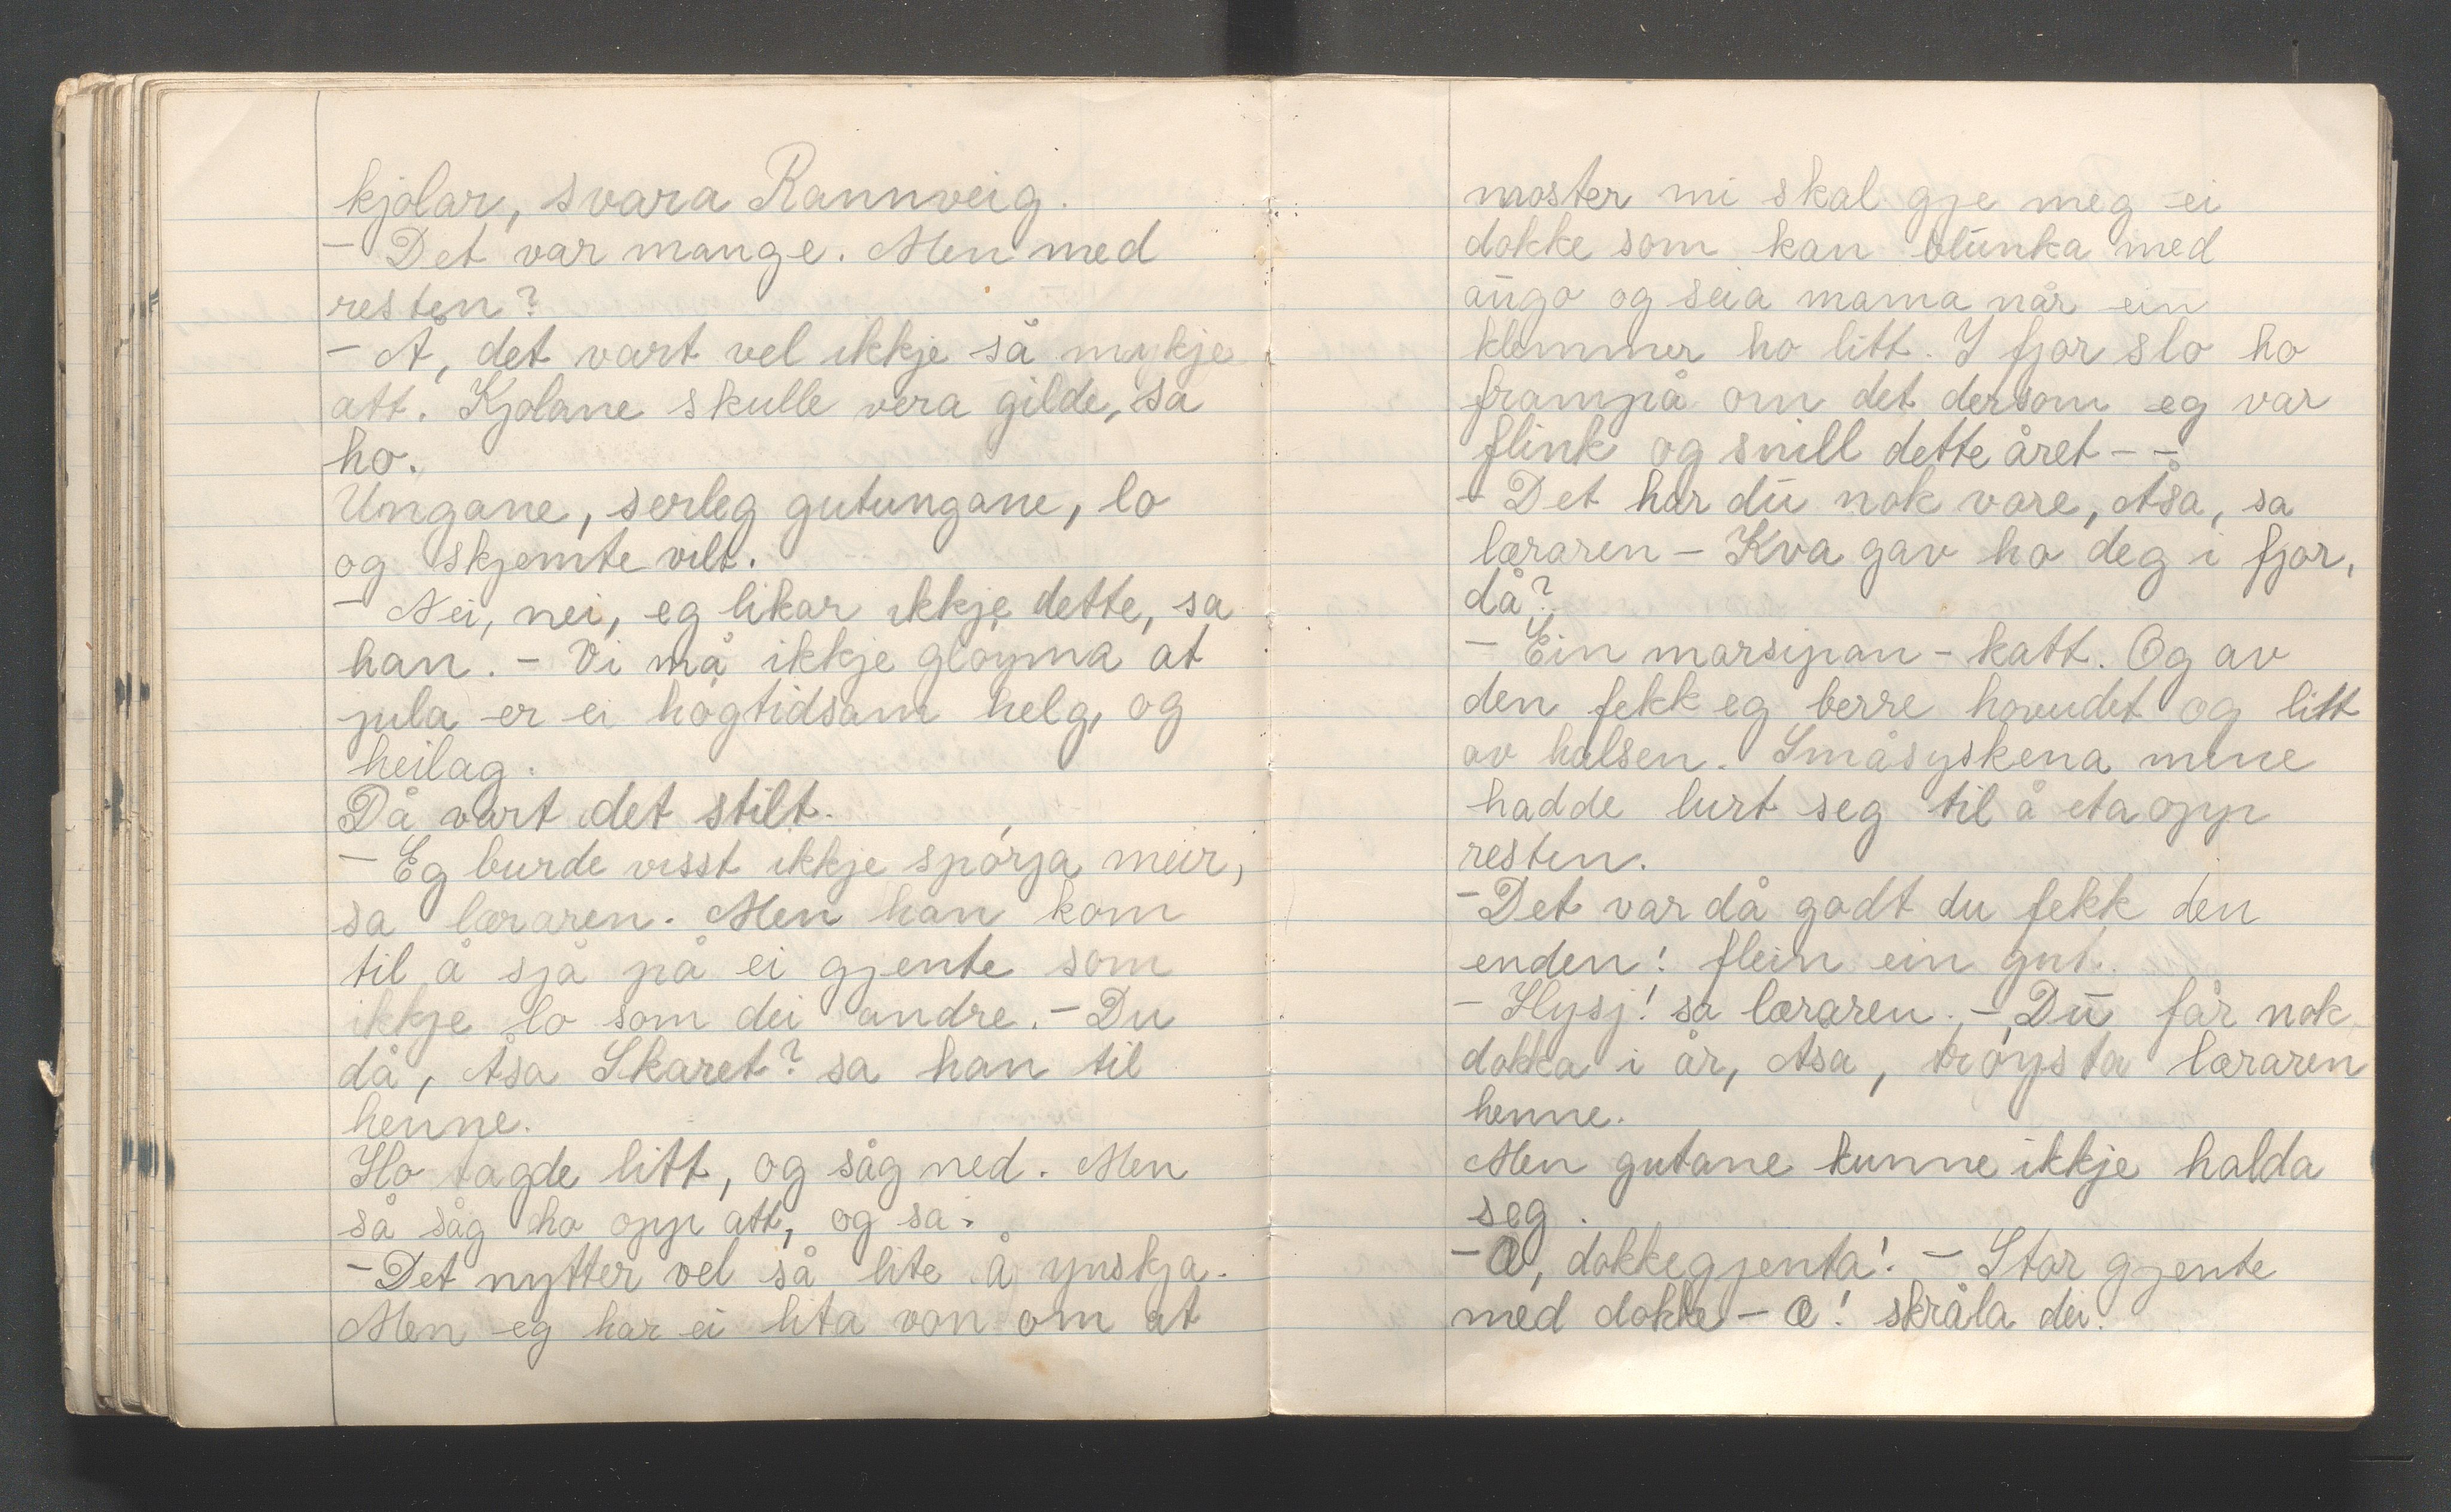 kjolar, svara Rannveig.
- Det var mange. Men med
resten?
- Å, det vart vel ikkje så mykje
att. Kjolane skulle vera gilde, sa
ho.
Ungane, serleg gutungane, lo
og skjemte vilt.
- Nei, nei, eg likar ikkje dette, sa
han. - Vi må ikkje gløyma at
jula er ei høgtidsam helg, og
heilag.
Då vart det stilt.
- Eg burde visst ikkje spórja meir,
sa læraren. Men han kom
til å sjå på ei gjente som
ikkje lo som dei andre. - Du
då, Åsa Skaret? sa han til
henne.
Ho tagde litt, og såg ned. Men
så såg ho opp att, og sa:
- Det nytter vel så lite å ynskja.
Men eg har ei lita von om at
moster mi skal gje meg ei
dokke som kan blunka med
augo og seia mama når ein
klemmer ho litt. I fjor slo ho
frampå om det dersom eg var
flink og snill dette året - -
- Det har du nok vore, Åsa, sa
læraren - Kva gav ho deg i fjor,
då?
- Ein marsipan-katt. Og av
den fekk eg berre hovudet og litt
av halsen. Småsyskena mine
hadde lurt seg til å eta opp
resten.
- Det var då godt du fekk den
enden! flein ein gut.
- Hysj! sa læraren. - Du får nok
dokka i år, Åsa, trøysta læraren
henne.
Men gutane kunne ikkje halda
seg.
- Æ, dokkegjenta! - Stor gjente
med dokke - æ! skråla dei.